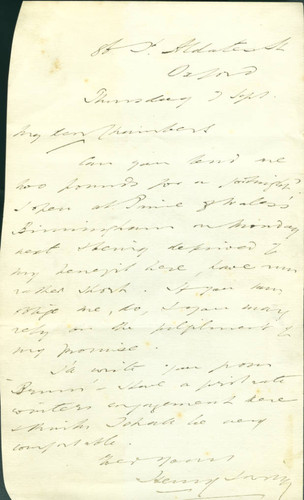 86 St. Aldates St
Oxford
Thursday 7 Sept.
My dear Chambers
Can you lend me
two pounds for a fortnight?
I open at Prince of Wales's
Birmingham on Monday
next & being deprived of
my benefit here, have run
rather short. If you can
oblige me, do, & you may
rely on the fulfilment of
my promise.
I'll write you from
'Brum' - Have a first rate
winters engagement here
& think I shall be very
comfortable.
Ever Yours
Henry